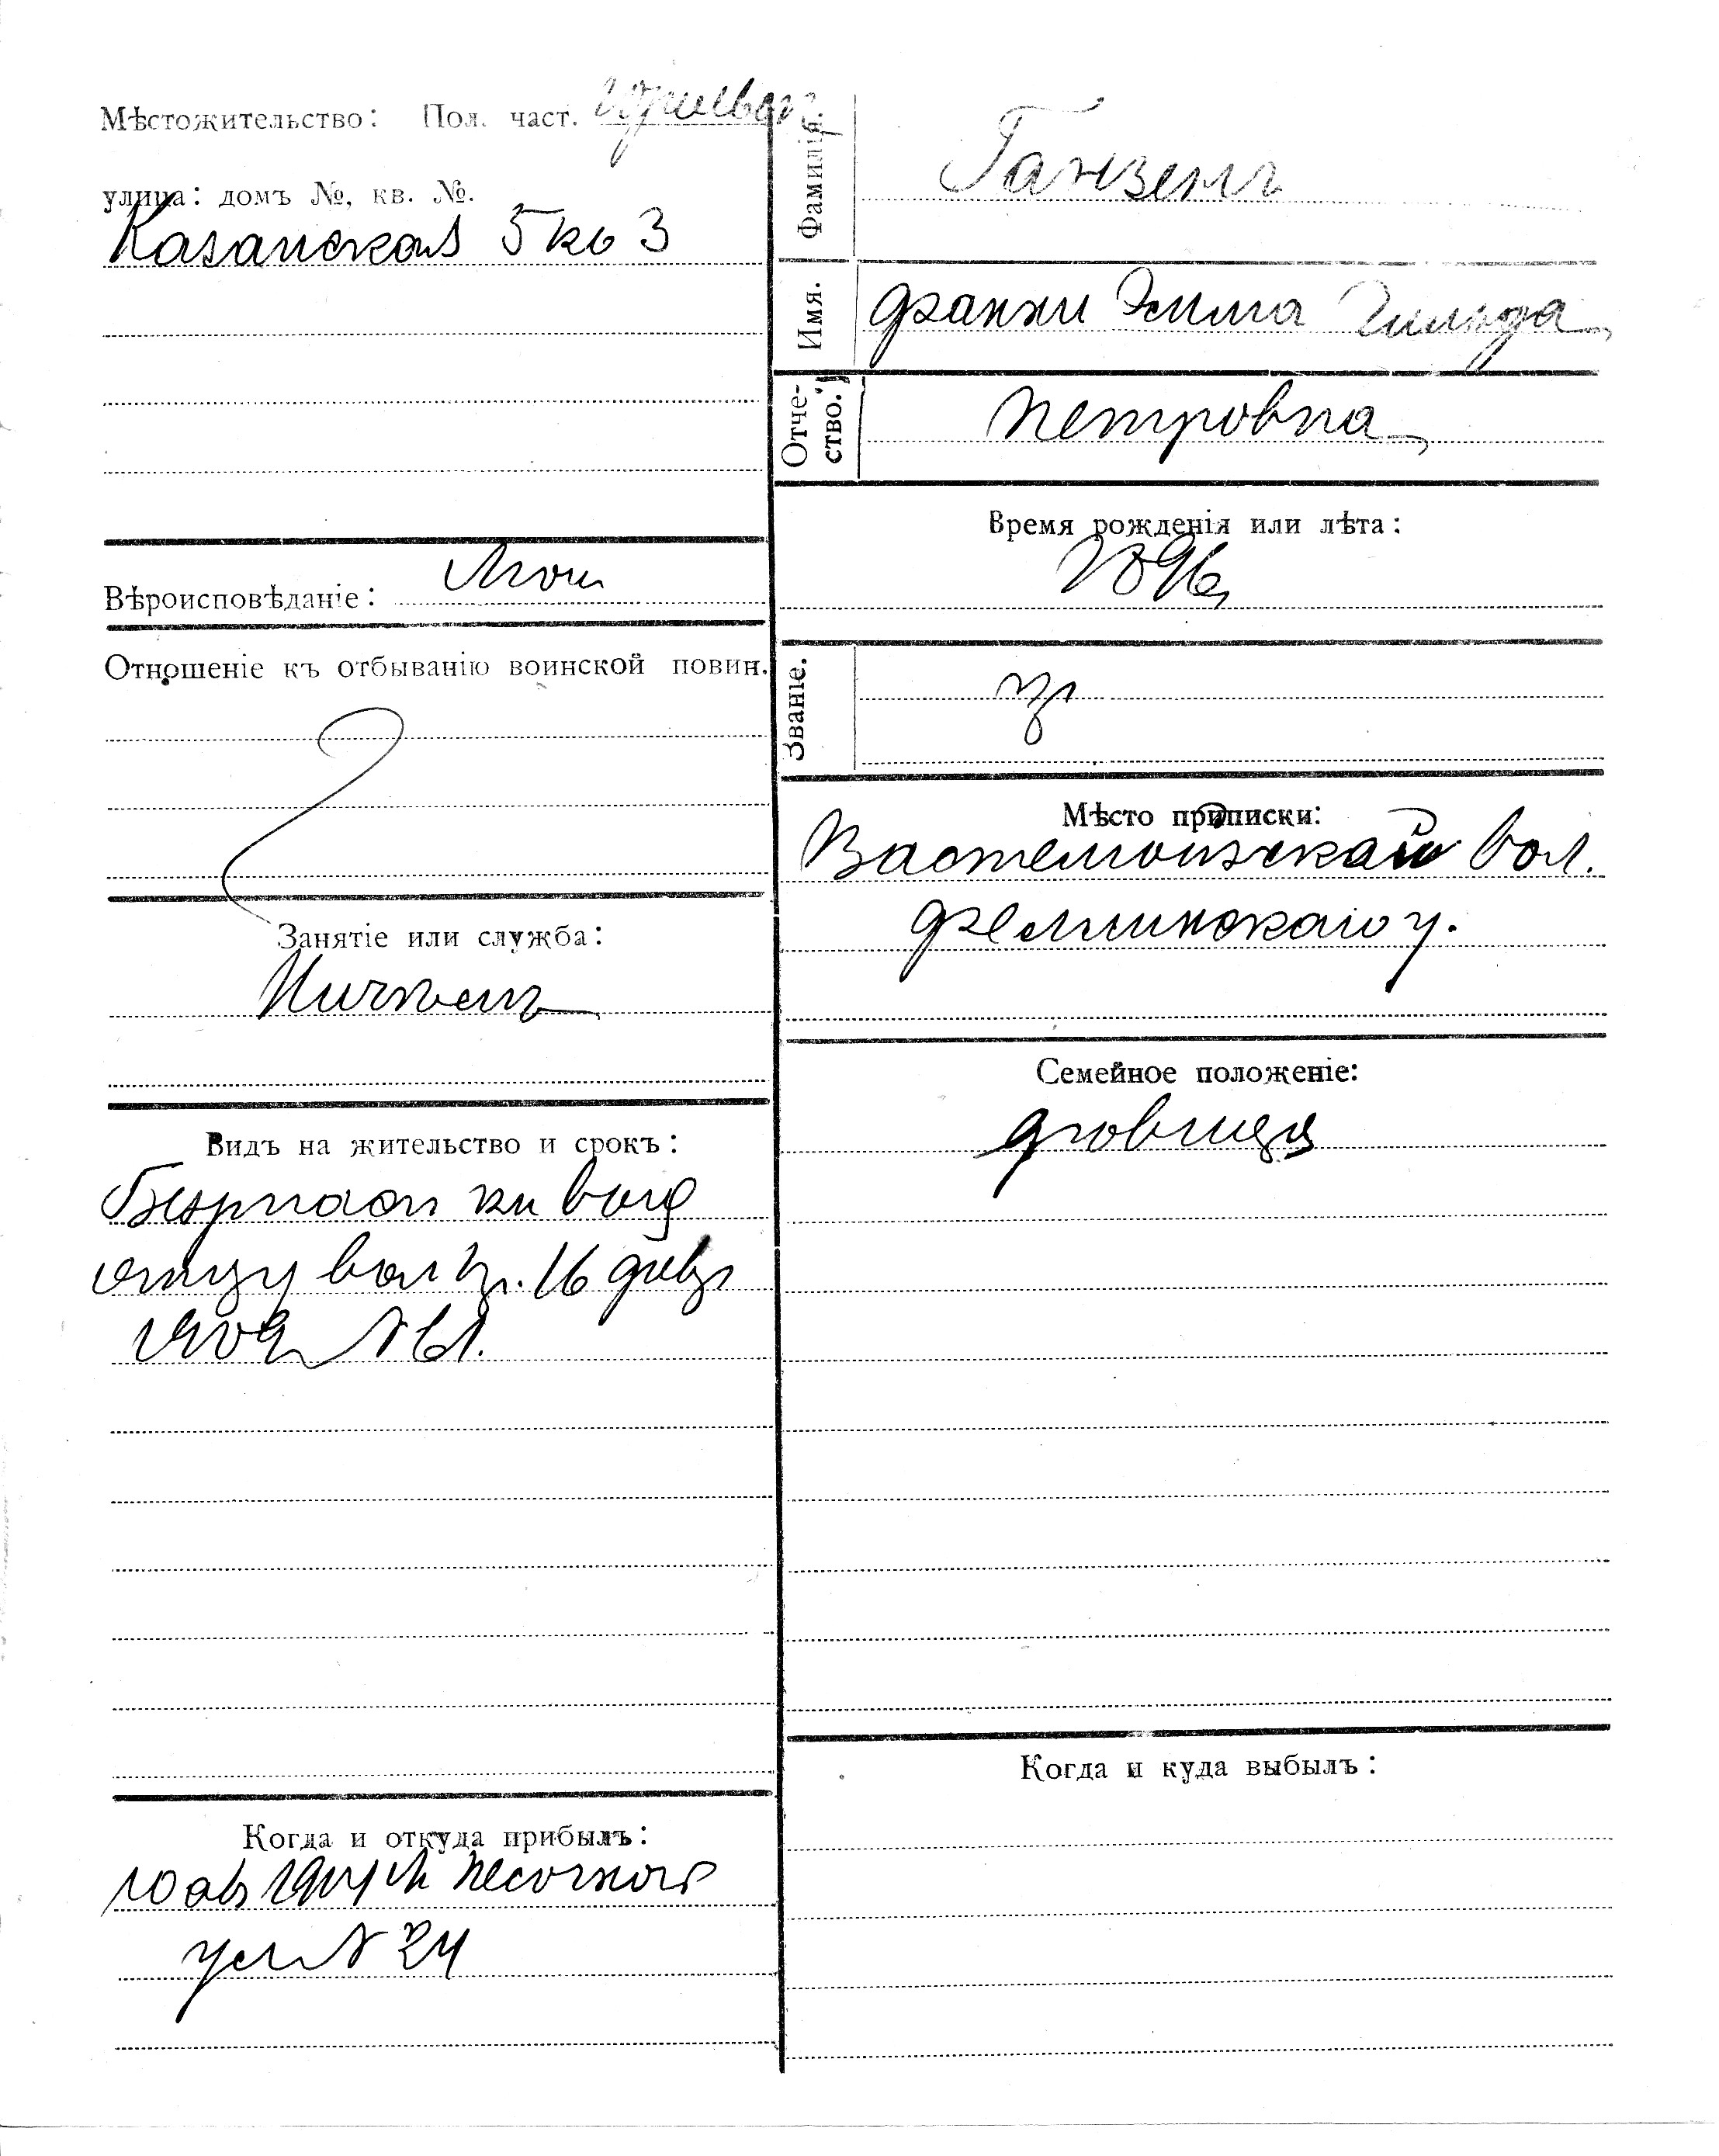 Мѣстожительство: Пол. част. Юрьевъ
улица: домъ №, кв. №.
Казанская 5 кв 3
Вѣроисповѣданіе: Лют
Отношеніе къ отбыванію воинской повин.
Занятіе или служба:
Видъ на жительство и срокъ:
Безсроч
вол 16
№ 61.
Когда и откуда прибылъ:
10 авг 1914 Песочной
ул № 24
Фамилія. Ганзенъ
Имя. Фанни Эмма Гильда
Отчество. Петровна
Время рожденія или лѣта:
1896
Званіе. кр
Мѣсто приписки:
Вастемойзской вол.
Феллинскаго у.
Семейное положеніе:
дѣвица
Когда и куда выбылъ: